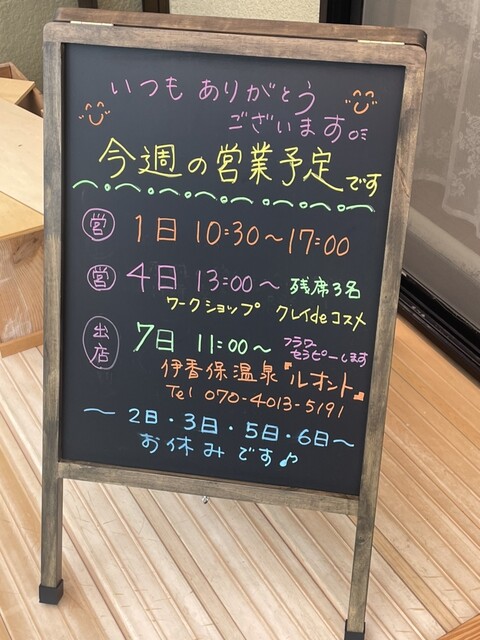 いつもありがとう
ございます
今週の営業予定です
営 1日 10:30～17:00
営 4日 13:00～ 残席3名
ワークショップ クレイdeコスメ
出店 7日 11:00～ フラワーセラピーします
伊香保温泉『ルオント』
Tel 070-4013-5191
～2日・3日・5日・6日～
お休みです♪